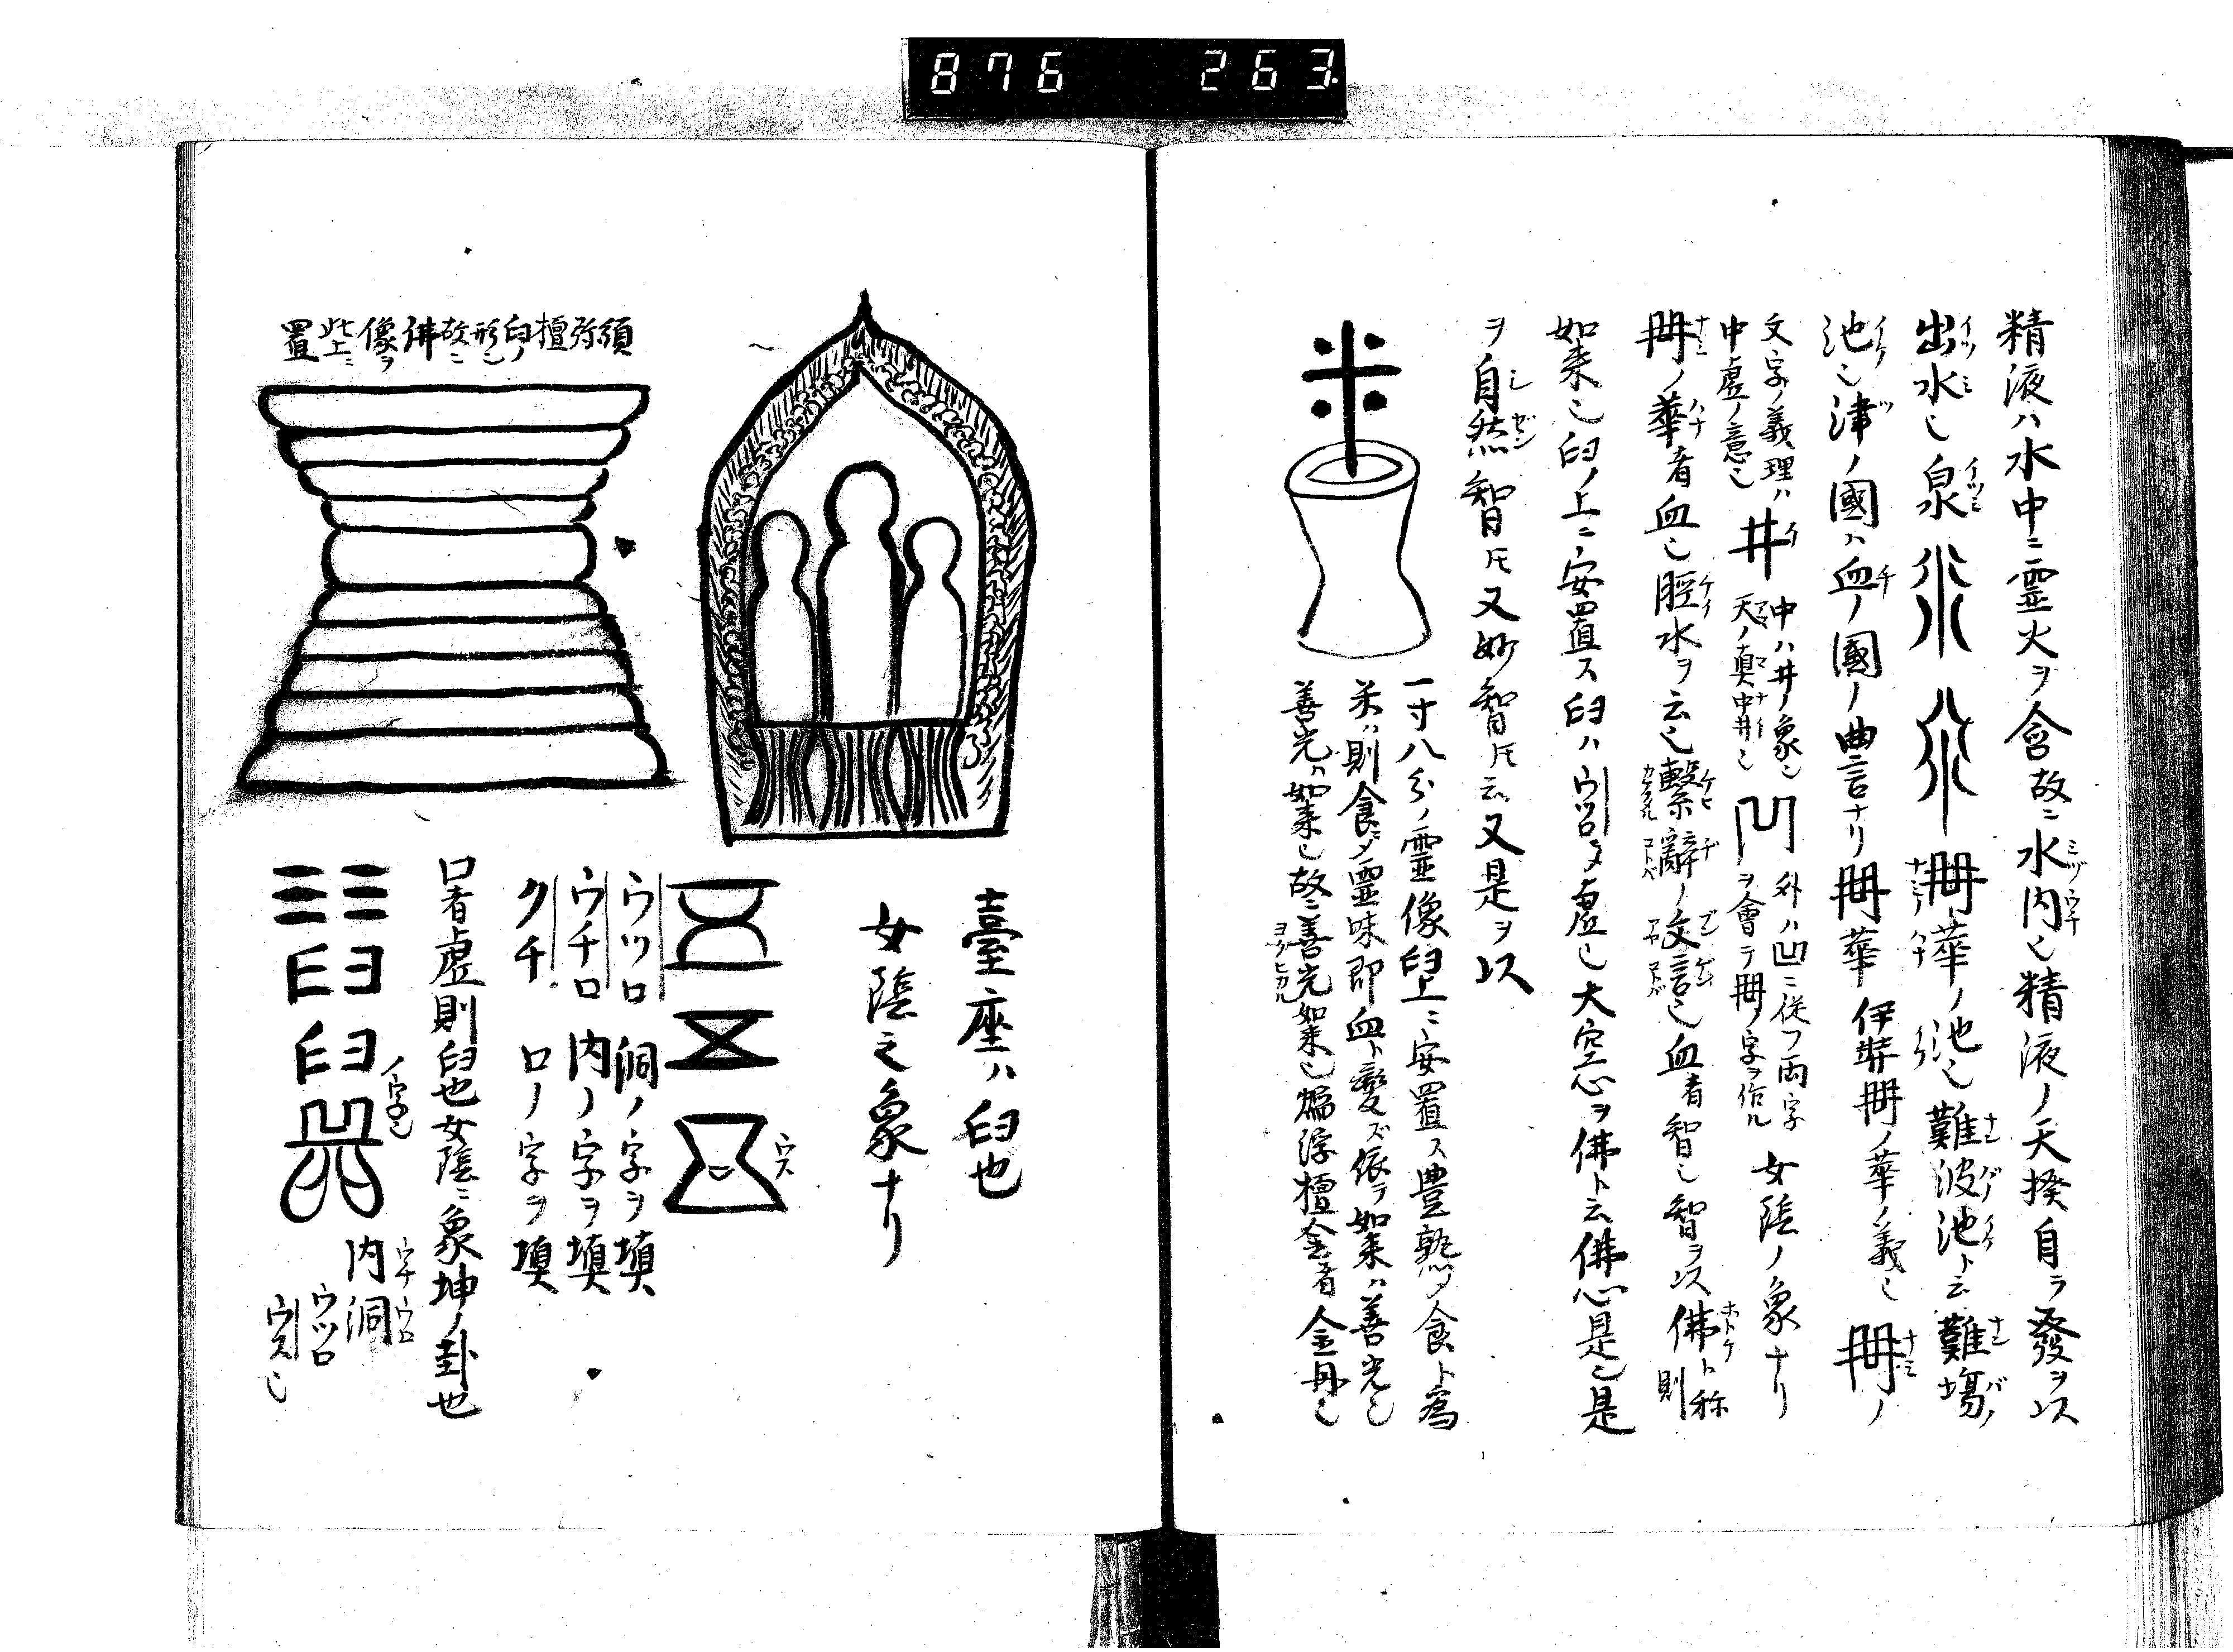 876 263
精液ハ水中ニ霊火ヲ含故ニ水内也精液ノ天揆自ラ發ヲ以
出水也泉 冊華ノ池也難波池ト云難場ノ
池也津ノ國ハ血ノ國ノ曲言ナリ冊華 伊弉冊ノ華ノ義也冊ノ
文字ノ義理ハ
中虚ノ意也
井
中ハ井ノ象也
天ノ真中井也
凹
外ハ凹ニ従フ両字
ヲ會テ冊ノ字ヲ作ル
女陰ノ象ナリ
冊ノ華者血也腟水ヲ云也繫辭ノ文言也血者智也智ヲ以佛ト称則
如来也臼ノ上ニ安置ス臼ハウツロメ虚也大空心ヲ佛ト云佛心是也是
ヲ自然智トモ又妙智トモ云又是ヲ以
一寸八分ノ霊像臼上ニ安置ス豊熟メ食ト為
米ハ則食メ霊味即血ト變ズ依テ如来ハ善光也
善光ハ如来也故ニ善光如来也 浮檀金者金丹也
臺座ハ臼也
女陰之象ナリ
ウス
ウツロ 洞ノ字ヲ填
ウチロ 内ノ字ヲ填
クチ 口ノ字ヲ填
口者虚則臼也女陰ニ象坤ノ卦也
須弥檀臼ノ形也故ニ佛像ヲ此上ニ置
臼 臼 ノ字也
内洞
ウチウロ
ウツロ
ウス也